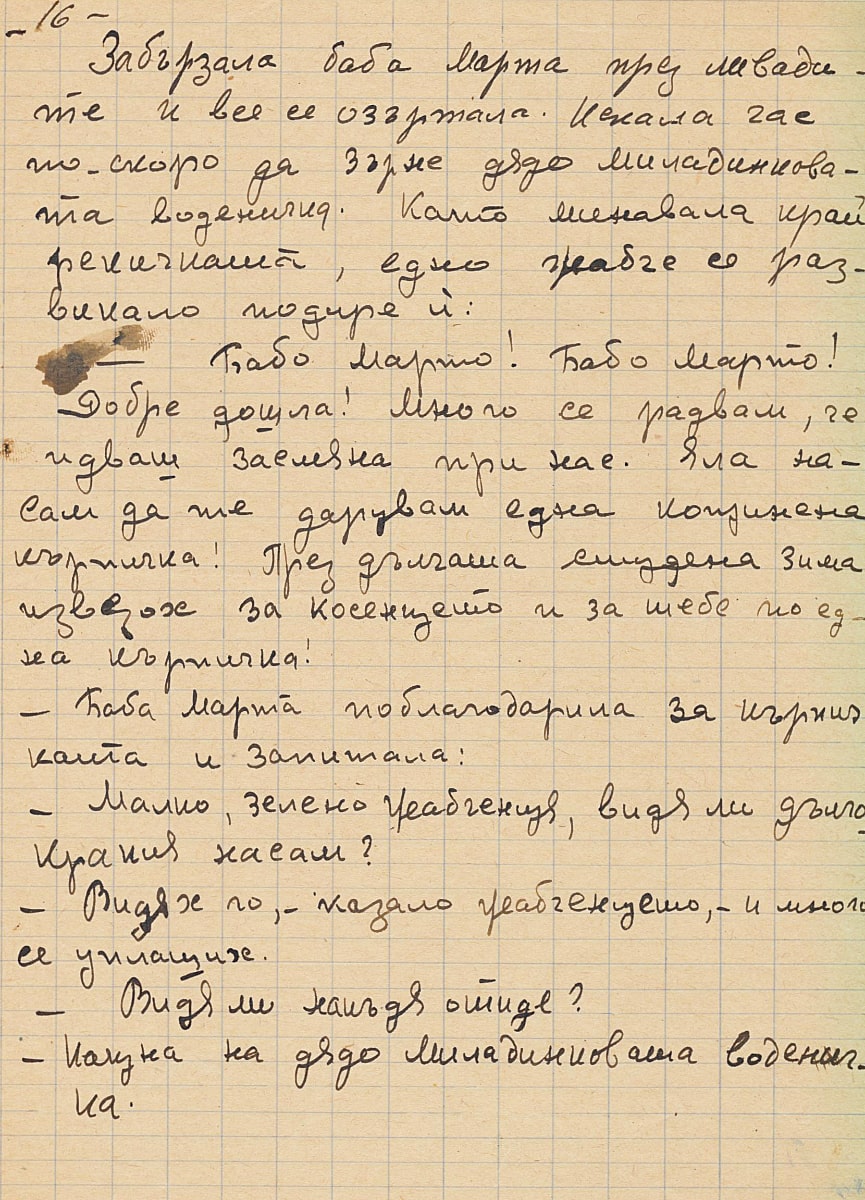 - 16 -
Забързала баба Марта през ливади-
те и все се озъртала. Искала час
по-скоро да зърне дядо Миладинкова-
та воденичка. Като минавала край
рекичката, едно жабче се раз-
викало подире ѝ:
— Бабо Марто! Бабо Марто!
Добре дошла! Много се радвам, че
идваш засмяна при нас. Яла на-
сам да те дарувам една копринена
кърпичка! През дългата студена зима
извезох за косенцето и за тебе по ед-
на кърпичка!
- Баба Марта поблагодарила за кърпич
ката и запитала:
- Малко, зелено жабченця, видя ли дълго
кракия насам?
- Видях го, - казало жабченцето, - и много
се уплаших.
- Видя ли накъдя отиде?
- Кацна на дядо Миладинковата воденич-
ка.